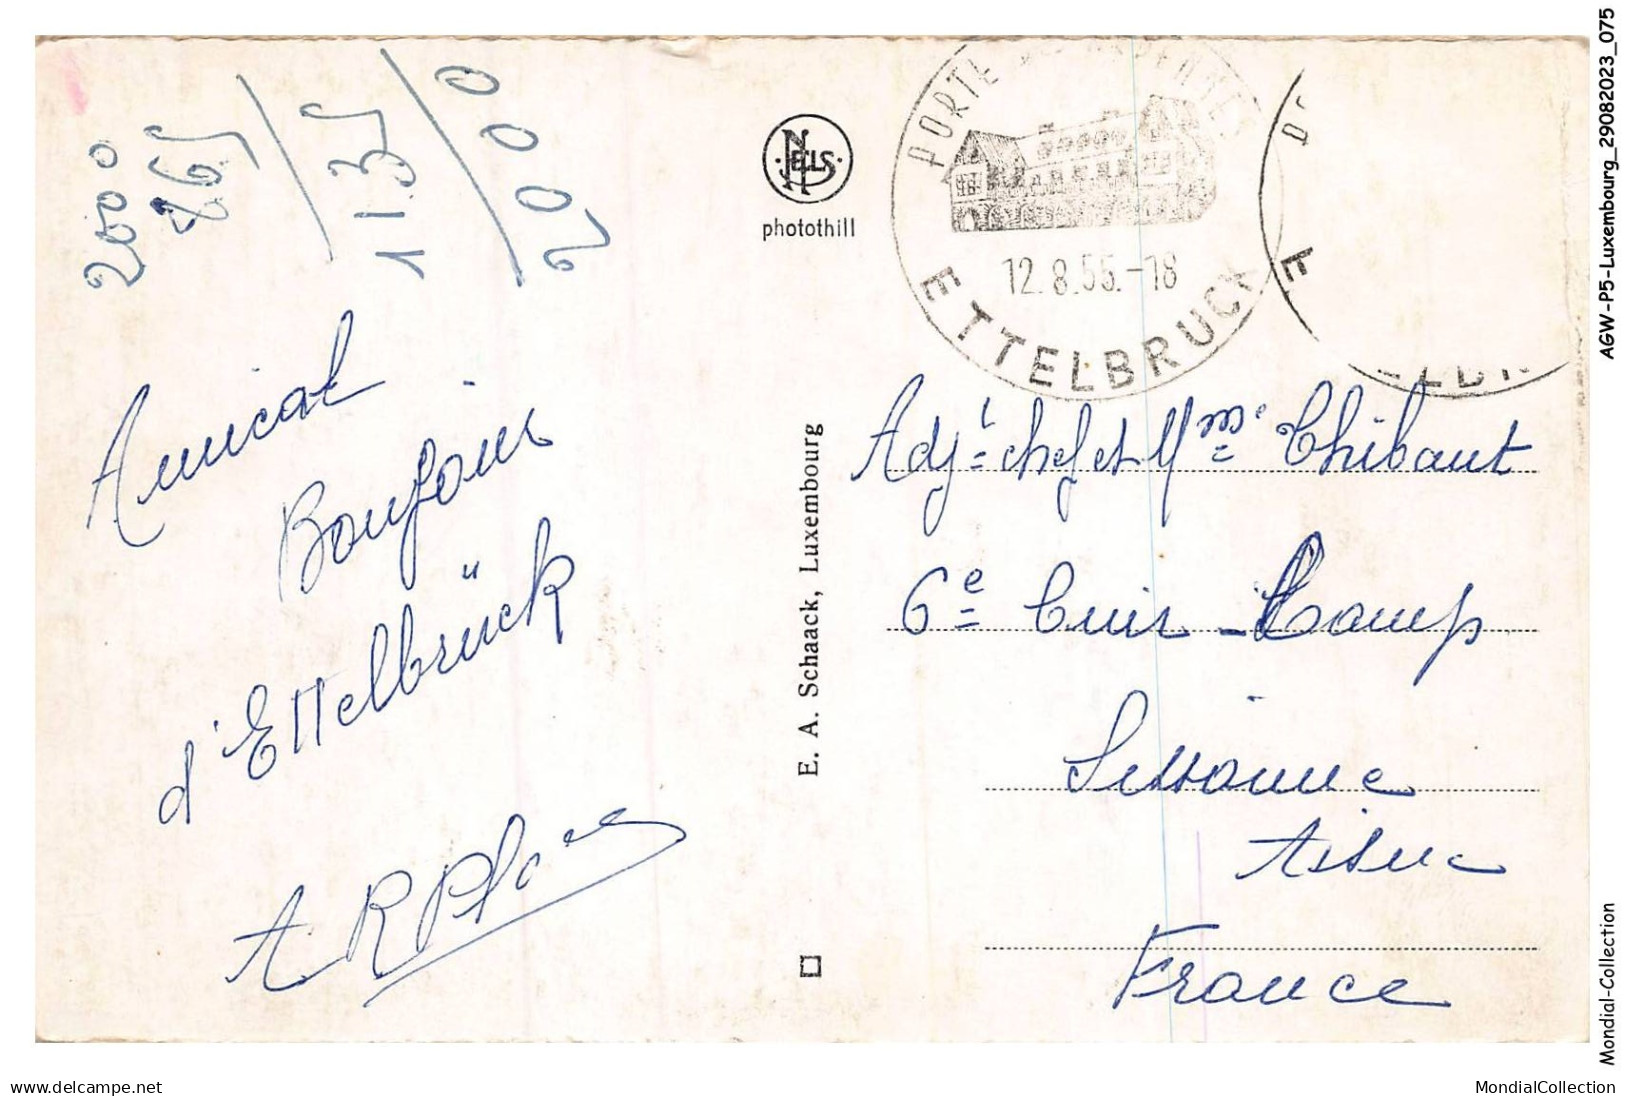 2000
265
1135
2000
Amical
Bonjour
d'Ettelbrück
NELS
photothill
E. A. Schaack, Luxembourg
PORTE ARDENNES
12.8.55.-18
ETTELBRUCK
Adjt chef et Mme Thibaut
6e Cuir - Camp
Sissonne
Aisne
France
AGW-P5-Luxembourg_29082023_075
Mondial-Collection
www.delcampe.net
MondialCollection